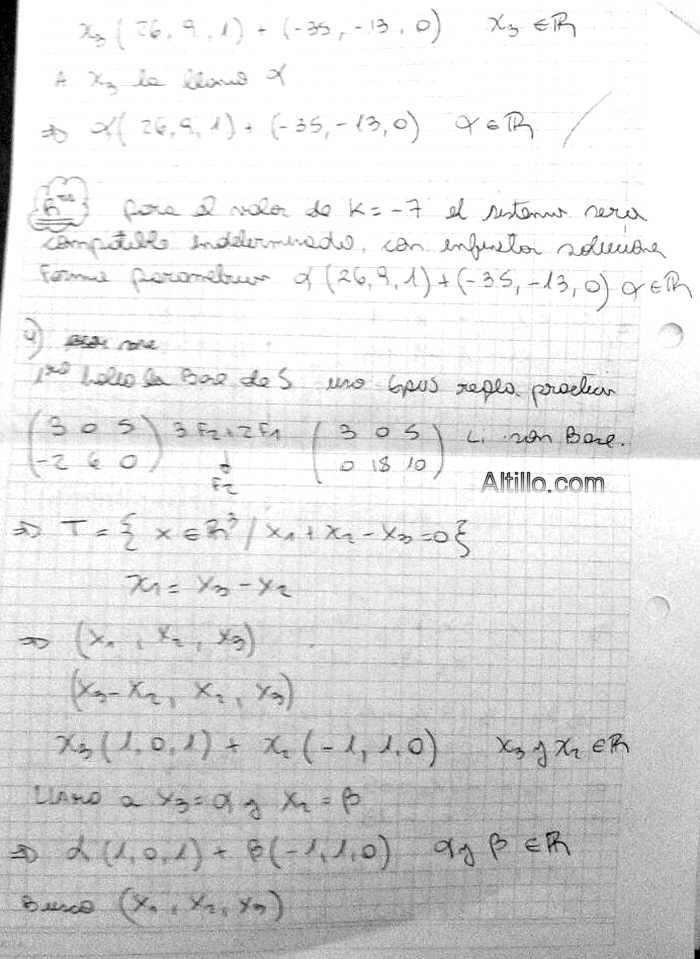 x₃ (26, 9, 1) + (-35, -13, 0)   x₃ ∈ ℝ
A x₃ la llamo α
⇒ α (26, 9, 1) + (-35, -13, 0)   α ∈ ℝ
para el valor de K = -7 el sistema sera
compatible indeterminado, con infinitas soluciones
Forma parametrica α (26, 9, 1) + (-35, -13, 0) α ∈ ℝ
4)
1ro hallo la Base de S uso Gauss regla practica
(3 0 5) 3F₂ + 2F₁ (3 0 5) Li son Base.
(-2 6 0) ↓ (0 18 10)
F₂
Altillo.com
⇒ T = { x ∈ ℝ³ / x₁ + x₂ - x₃ = 0 }
x₁ = x₃ - x₂
⇒ (x₁, x₂, x₃)
(x₃ - x₂, x₂, x₃)
x₃ (1, 0, 1) + x₂ (-1, 1, 0)   x₃ y x₂ ∈ ℝ
LLAMO a x₃ = α y x₂ = β
⇒ α (1, 0, 1) + β (-1, 1, 0)   α y β ∈ ℝ
Busco (x₁, x₂, x₃)